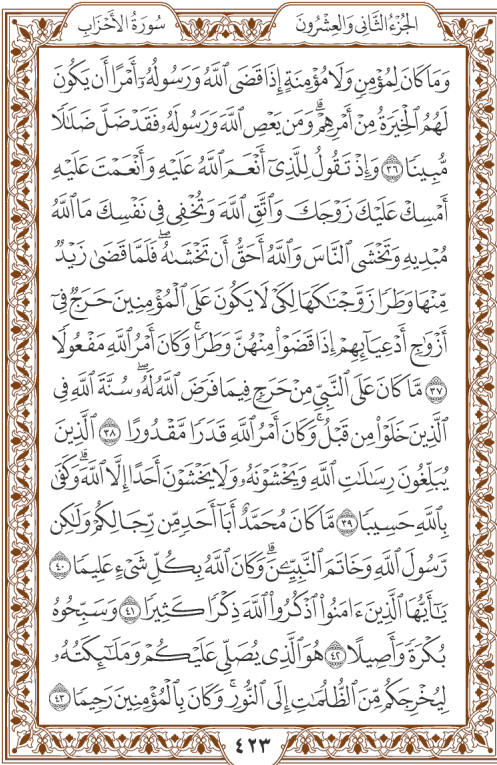 الجُزْءُ الثَّانِي وَالعِشْرُونَ سُورَةُ الأَحْزَابِ
وَمَا كَانَ لِمُؤْمِنٍ وَلَا مُؤْمِنَةٍ إِذَا قَضَى ٱللَّهُ وَرَسُولُهُۥٓ أَمْرًا أَن يَكُونَ
لَهُمُ ٱلْخِيَرَةُ مِنْ أَمْرِهِمْۗ وَمَن يَعْصِ ٱللَّهَ وَرَسُولَهُۥ فَقَدْ ضَلَّ ضَلَٰلًا
مُّبِينًا ٣٦ وَإِذْ تَقُولُ لِلَّذِىٓ أَنْعَمَ ٱللَّهُ عَلَيْهِ وَأَنْعَمْتَ عَلَيْهِ
أَمْسِكْ عَلَيْكَ زَوْجَكَ وَٱتَّقِ ٱللَّهَ وَتُخْفِى فِى نَفْسِكَ مَا ٱللَّهُ
مُبْدِيهِ وَتَخْشَى ٱلنَّاسَ وَٱللَّهُ أَحَقُّ أَن تَخْشَىٰهُۖ فَلَمَّا قَضَىٰ زَيْدٌ
مِّنْهَا وَطَرًا زَوَّجْنَٰكَهَا لِكَىْ لَا يَكُونَ عَلَى ٱلْمُؤْمِنِينَ حَرَجٌ فِىٓ
أَزْوَٰجِ أَدْعِيَآئِهِمْ إِذَا قَضَوْا۟ مِنْهُنَّ وَطَرًاۚ وَكَانَ أَمْرُ ٱللَّهِ مَفْعُولًا
٣٧ مَّا كَانَ عَلَى ٱلنَّبِىِّ مِنْ حَرَجٍ فِيمَا فَرَضَ ٱللَّهُ لَهُۥۖ سُنَّةَ ٱللَّهِ فِى
ٱلَّذِينَ خَلَوْا۟ مِن قَبْلُۚ وَكَانَ أَمْرُ ٱللَّهِ قَدَرًا مَّقْدُورًا ٣٨ ٱلَّذِينَ
يُبَلِّغُونَ رِسَٰلَٰتِ ٱللَّهِ وَيَخْشَوْنَهُۥ وَلَا يَخْشَوْنَ أَحَدًا إِلَّا ٱللَّهَۗ وَكَفَىٰ
بِٱللَّهِ حَسِيبًا ٣٩ مَّا كَانَ مُحَمَّدٌ أَبَآ أَحَدٍ مِّن رِّجَالِكُمْ وَلَٰكِن
رَّسُولَ ٱللَّهِ وَخَاتَمَ ٱلنَّبِيِّۦنَۗ وَكَانَ ٱللَّهُ بِكُلِّ شَىْءٍ عَلِيمًا ٤٠
يَٰٓأَيُّهَا ٱلَّذِينَ ءَامَنُوا۟ ٱذْكُرُوا۟ ٱللَّهَ ذِكْرًا كَثِيرًا ٤١ وَسَبِّحُوهُ
بُكْرَةً وَأَصِيلًا ٤٢ هُوَ ٱلَّذِى يُصَلِّى عَلَيْكُمْ وَمَلَٰٓئِكَتُهُۥ
لِيُخْرِجَكُم مِّنَ ٱلظُّلُمَٰتِ إِلَى ٱلنُّورِۚ وَكَانَ بِٱلْمُؤْمِنِينَ رَحِيمًا ٤٣
٤٢٣